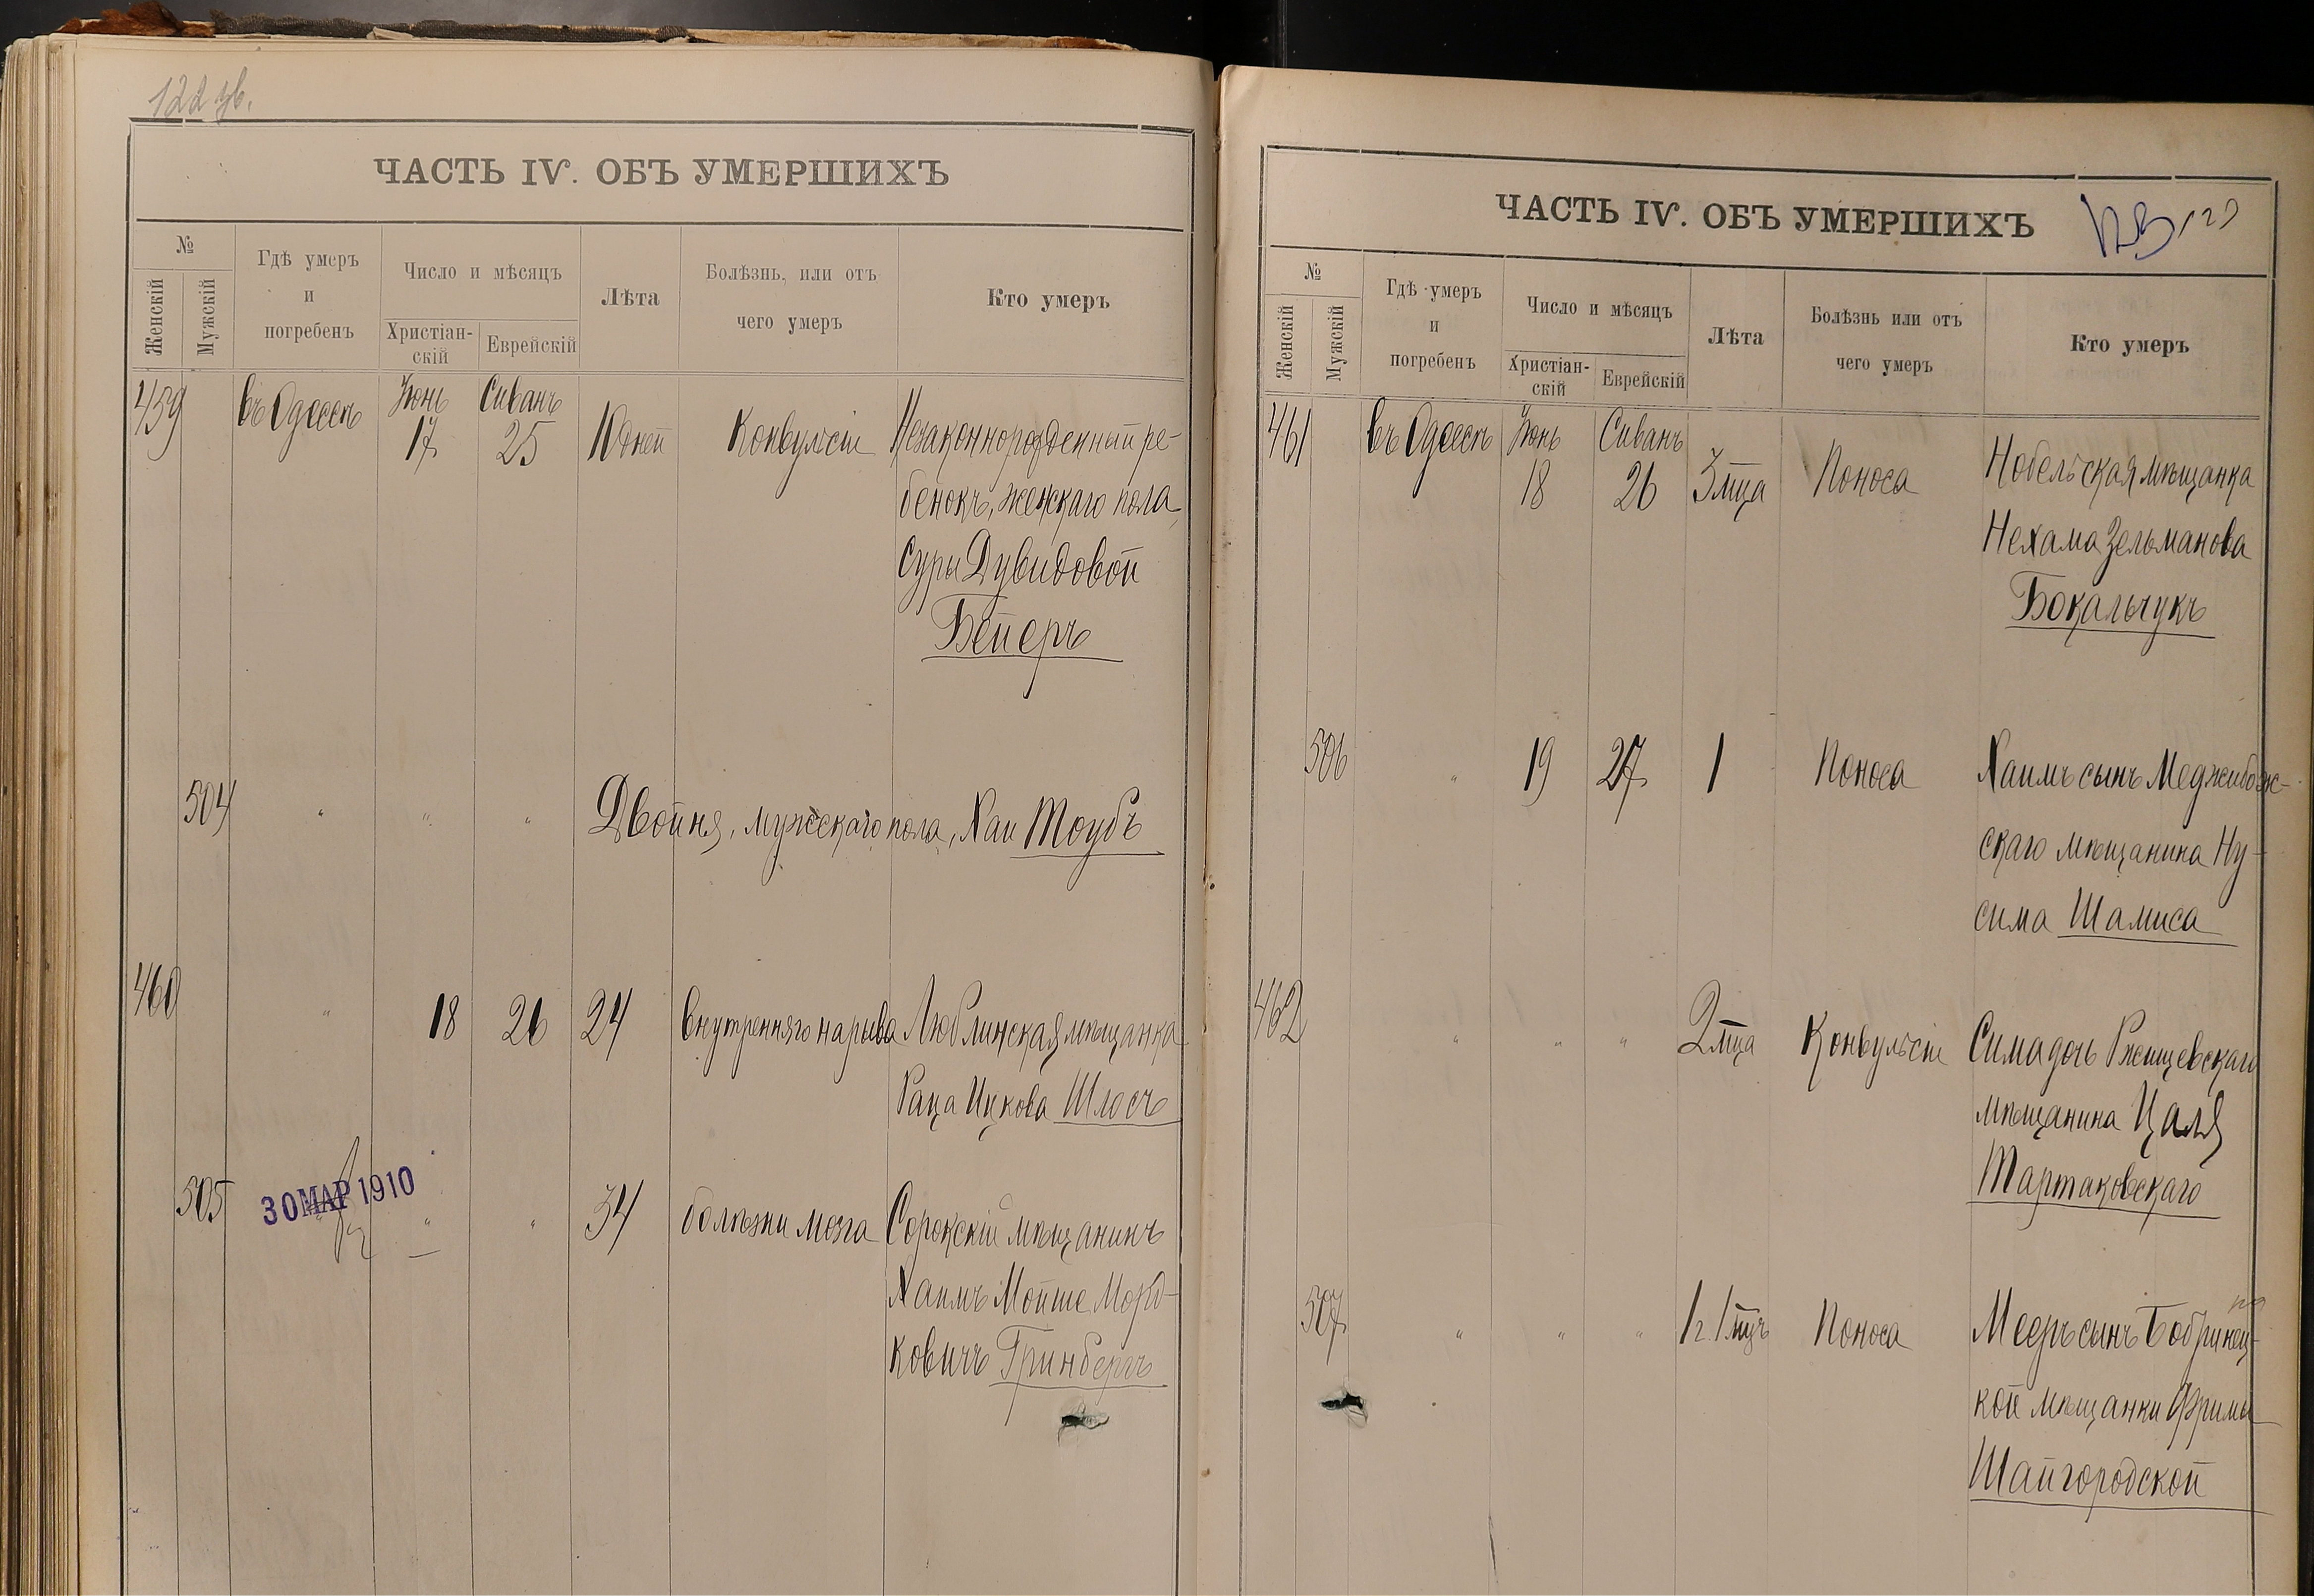 122 зв.
ЧАСТЬ IV. ОБЪ УМЕРШИХЪ
№
Женскій
Мужскій
Гдѣ умеръ
и
погребенъ
Число и мѣсяцъ
Христіан-
скій
Еврейскій
Лѣта
Болѣзнь, или отъ
чего умеръ
Кто умеръ
459 въ Одессѣ Іюнь 17 Сиванъ 25 10 дней Конвульсіи Незаконнорожденный ре-
бенокъ, женскаго пола,
Суры Дувидовой
Бейеръ
504 " " " Двойня, мужескаго пола, Хаи Тоубъ
460 " 18 26 24 Внутренняго нарыва Люблинская мѣщанка
Раца Ицкова Шлосъ
505 " " " 34 болѣзни мозга Сорокскій мѣщанинъ
30 МАР 1910
Хаимъ Мойше Морд-
ковичъ Гринбергъ
ЧАСТЬ IV. ОБЪ УМЕРШИХЪ
123 123
№
Женскій
Мужскій
Гдѣ умеръ
и
погребенъ
Число и мѣсяцъ
Христіан-
скій
Еврейскій
Лѣта
Болѣзнь или отъ
чего умеръ
Кто умеръ
461 въ Одессѣ Іюнь 18 Сиванъ 26 3 мца Поноса Нобельская мѣщанка
Нехама Зельманова
Бокальчукъ
506 " 19 27 1 Поноса Хаимъ сынъ Меджибож-
скаго мѣщанина Ну-
сима Шамиса
462 " " " 2 мца Конвульсіи Сима дочь Ржищевскаго
мѣщанина Цаля
Тартаковскаго
507 " " " 1 г. 1 мцъ Поноса Мееръ сынъ Бобринец-
кой мѣщанки Фримы
Шайгородской